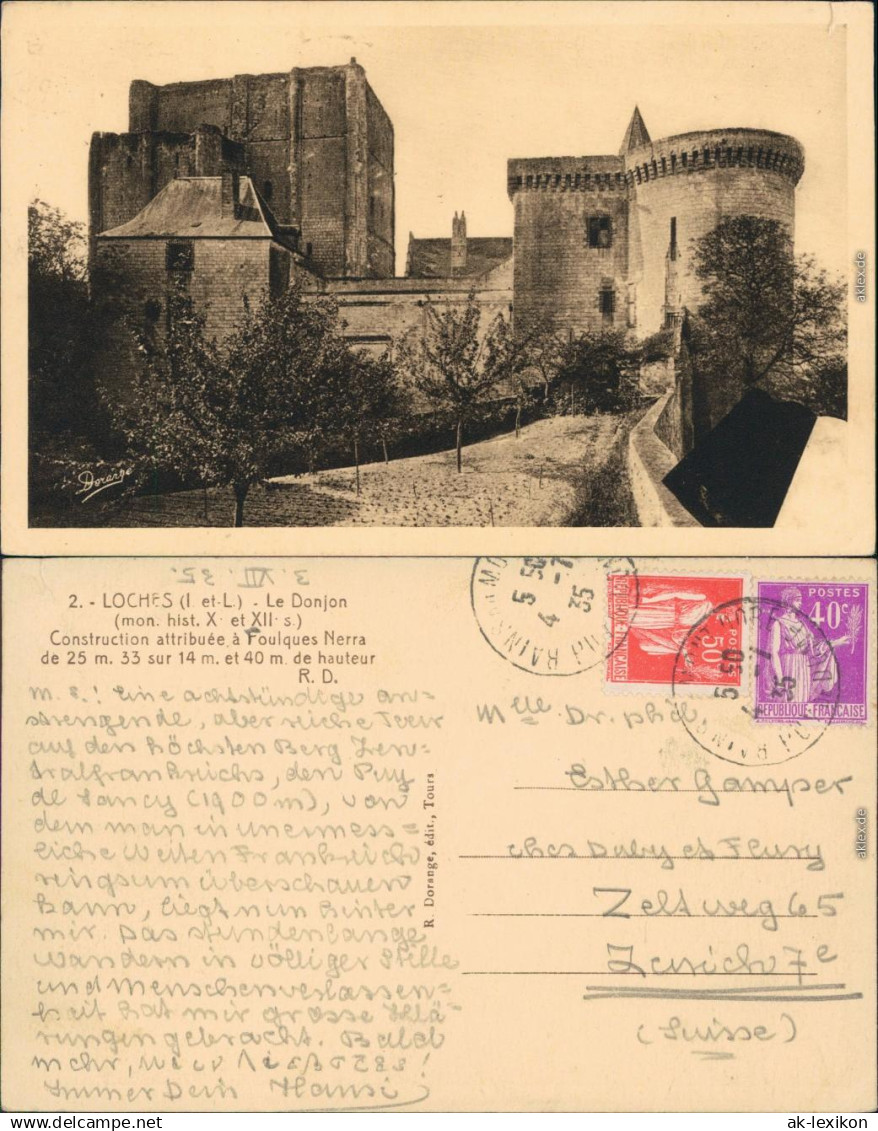 Dorange
aklexikon.de
3. VII. 35.
2. - LOCHES (I. et-L.) - Le Donjon
(mon. hist. X· et XII· s.)
Construction attribuée à Foulques Nerra
de 25 m. 33 sur 14 m. et 40 m. de hauteur
R. D.
M. E.! Eine achtstündige an=
strengende, aber reiche Tour
auf den höchsten Berg Zen=
tralfrankreichs, den Puy
de Sancy (1900 m), von
dem man in unermess=
liche Weiten Frankreich
ringsum überschauen
kann, liegt nun hinter
mir. Das stundenlange
Wandern in völliger Stille
und Menschenverlassen=
heit hat mir grosse Klä=
rungen gebracht. Bald
mehr,
Immer Dein Hansi
R. Dorange, édit., Tours
5 50
4 -7
35
50c
POSTES
RÉPUBLIQUE FRANÇAISE
POSTES
40c
RÉPUBLIQUE·FRANÇAISE
5 50
4 -7
35
Mlle Dr. phil.
Esther Gamper
ches Duby et Fleury
Zeltweg 65
Zurich 7e
(Suisse)
akleixon.de
ak-lexikon